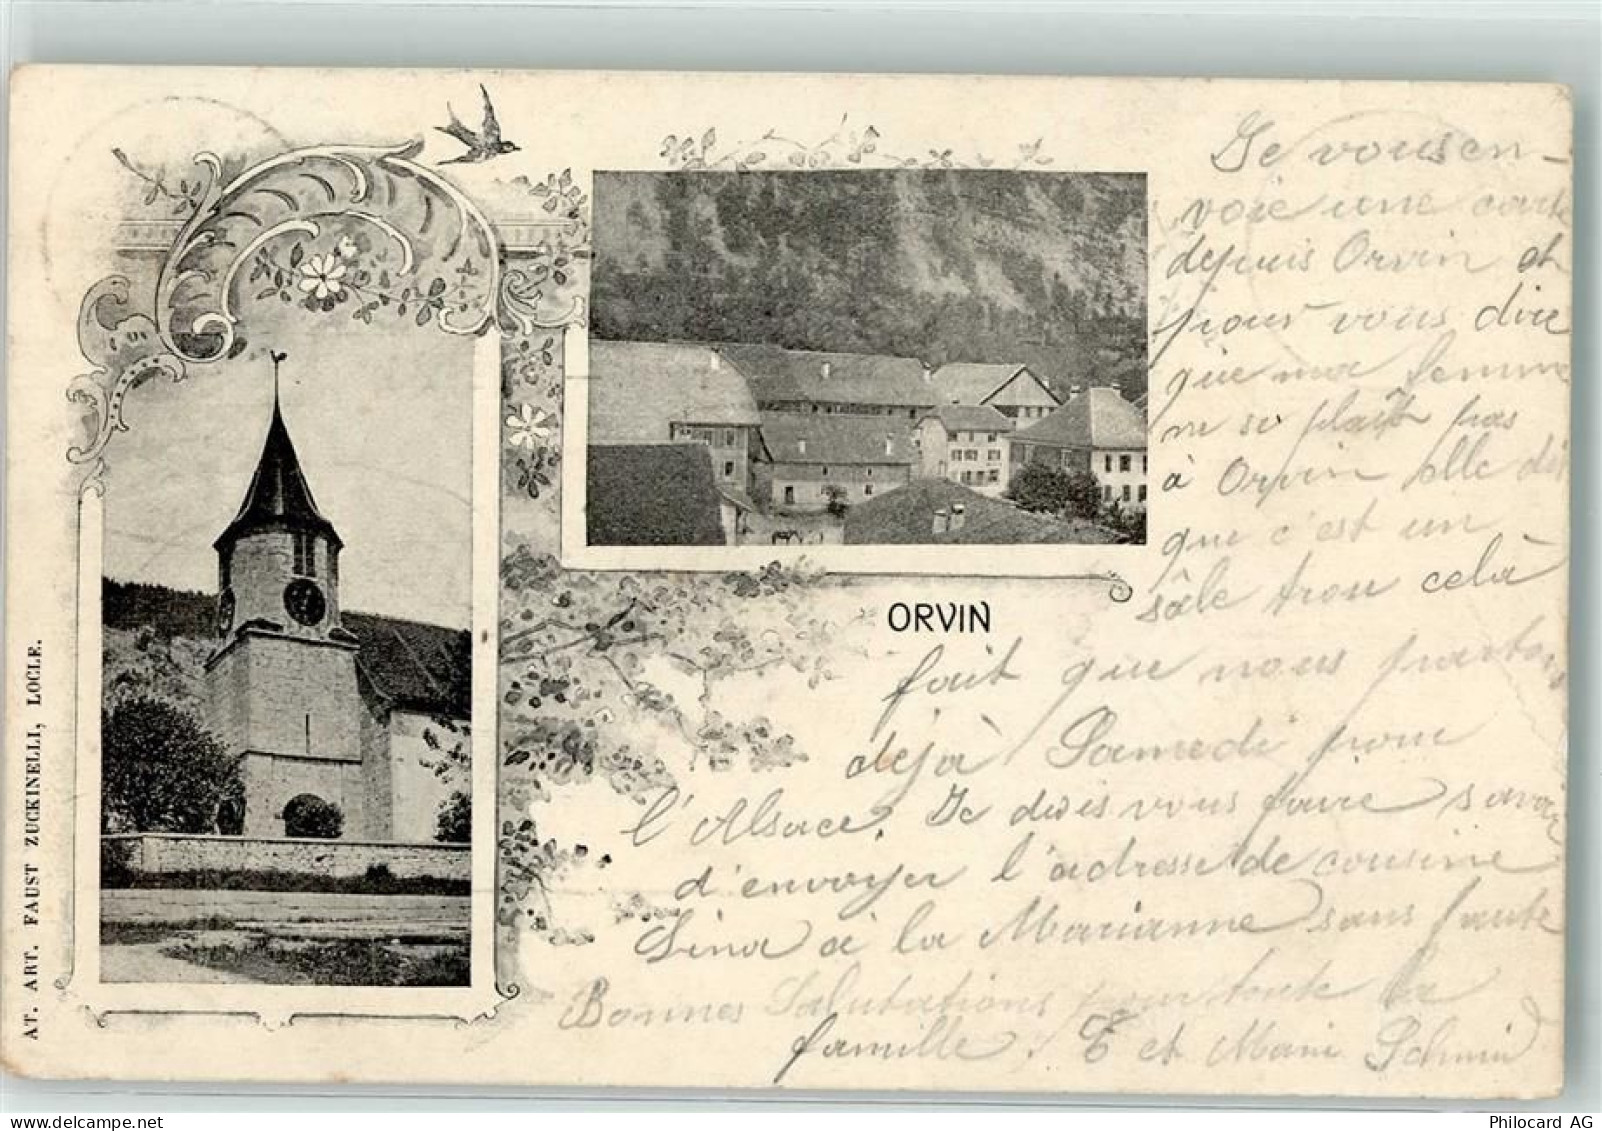 Je vous en-
voie une carte
depuis Orvin et
pour vous dire
que ma femme
ne se plaît pas
à Orvin elle dit
que c'est un
sâle trou celà
ORVIN
fait que nous partons
déjà Samedi pour
l'Alsace. Je dois vous faire savoir
d'envoyer l'adresse de cousine
Lina à la Marianne sans faute
Bonnes Salutations pour toute la
famille. E et Marie Schmid
AT. ART. FAUST ZUCKINELLI, LOCLE.
Philocard AG